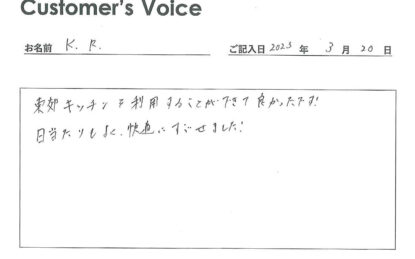 Customer's Voice
お名前 K. R. ご記入日 2023 年 3 月 20 日
キッチンを利用することができて良かったです!
日当たりもよく、快適にすごせました!